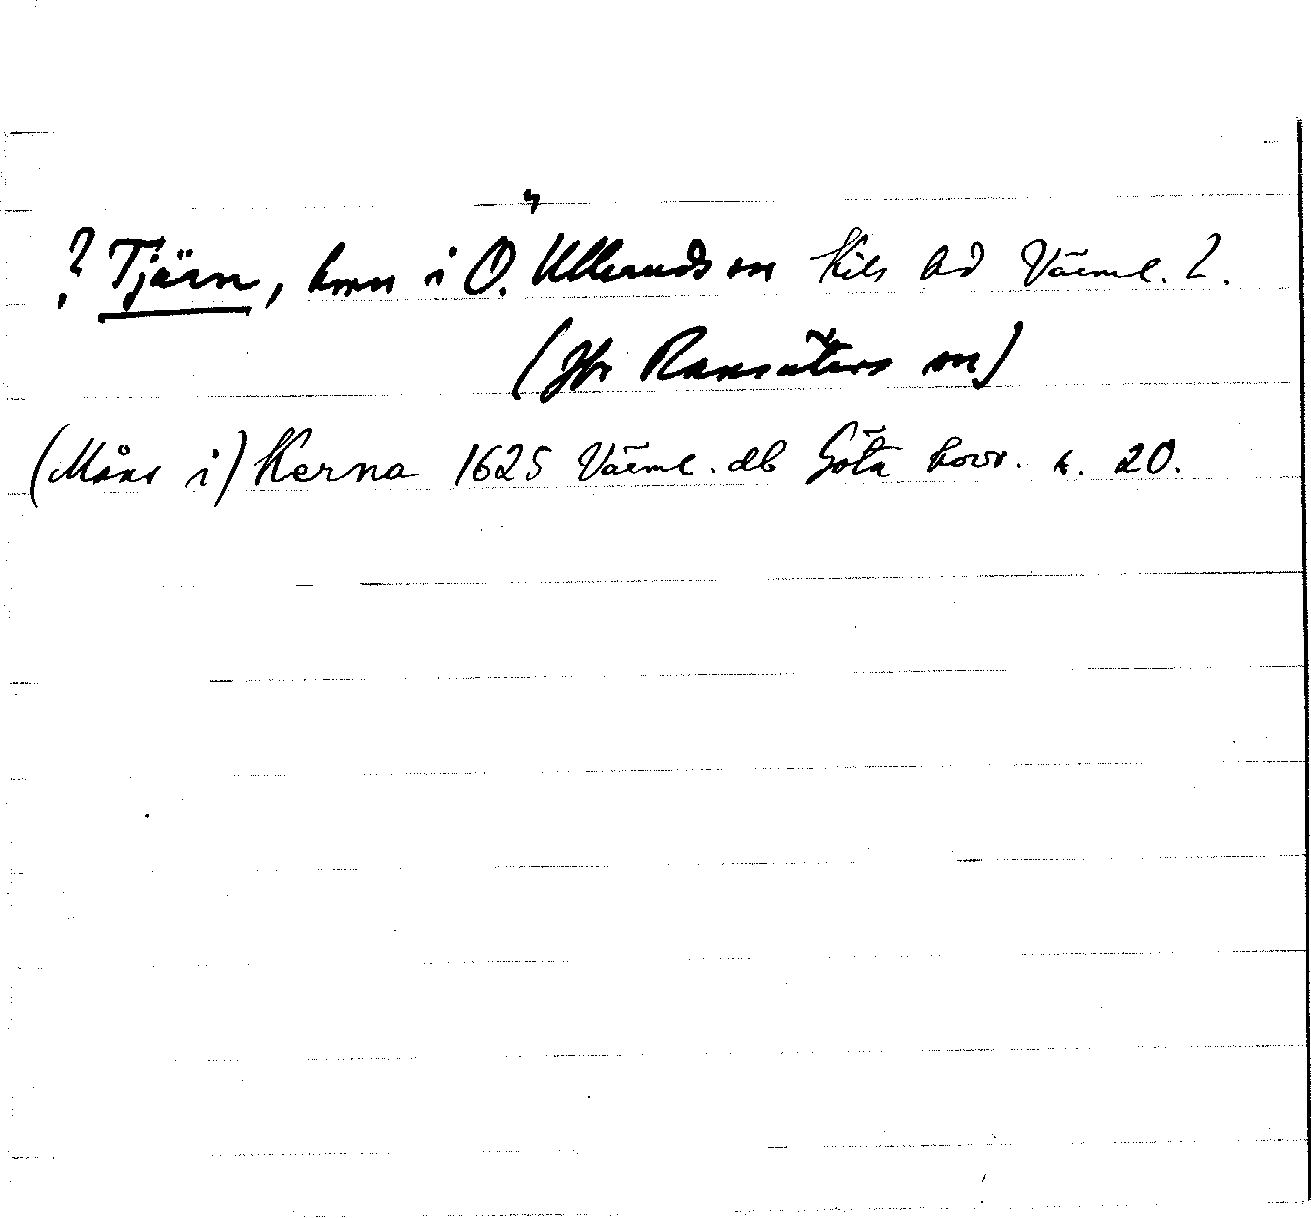 ? Tjärn, hmn i Ö. Ulleruds sn Kils hd Värml. L.
(Jfr Ransäters sn)
(Måns i) Kerna 1625 Värml. db Göta hovr. n. 20.